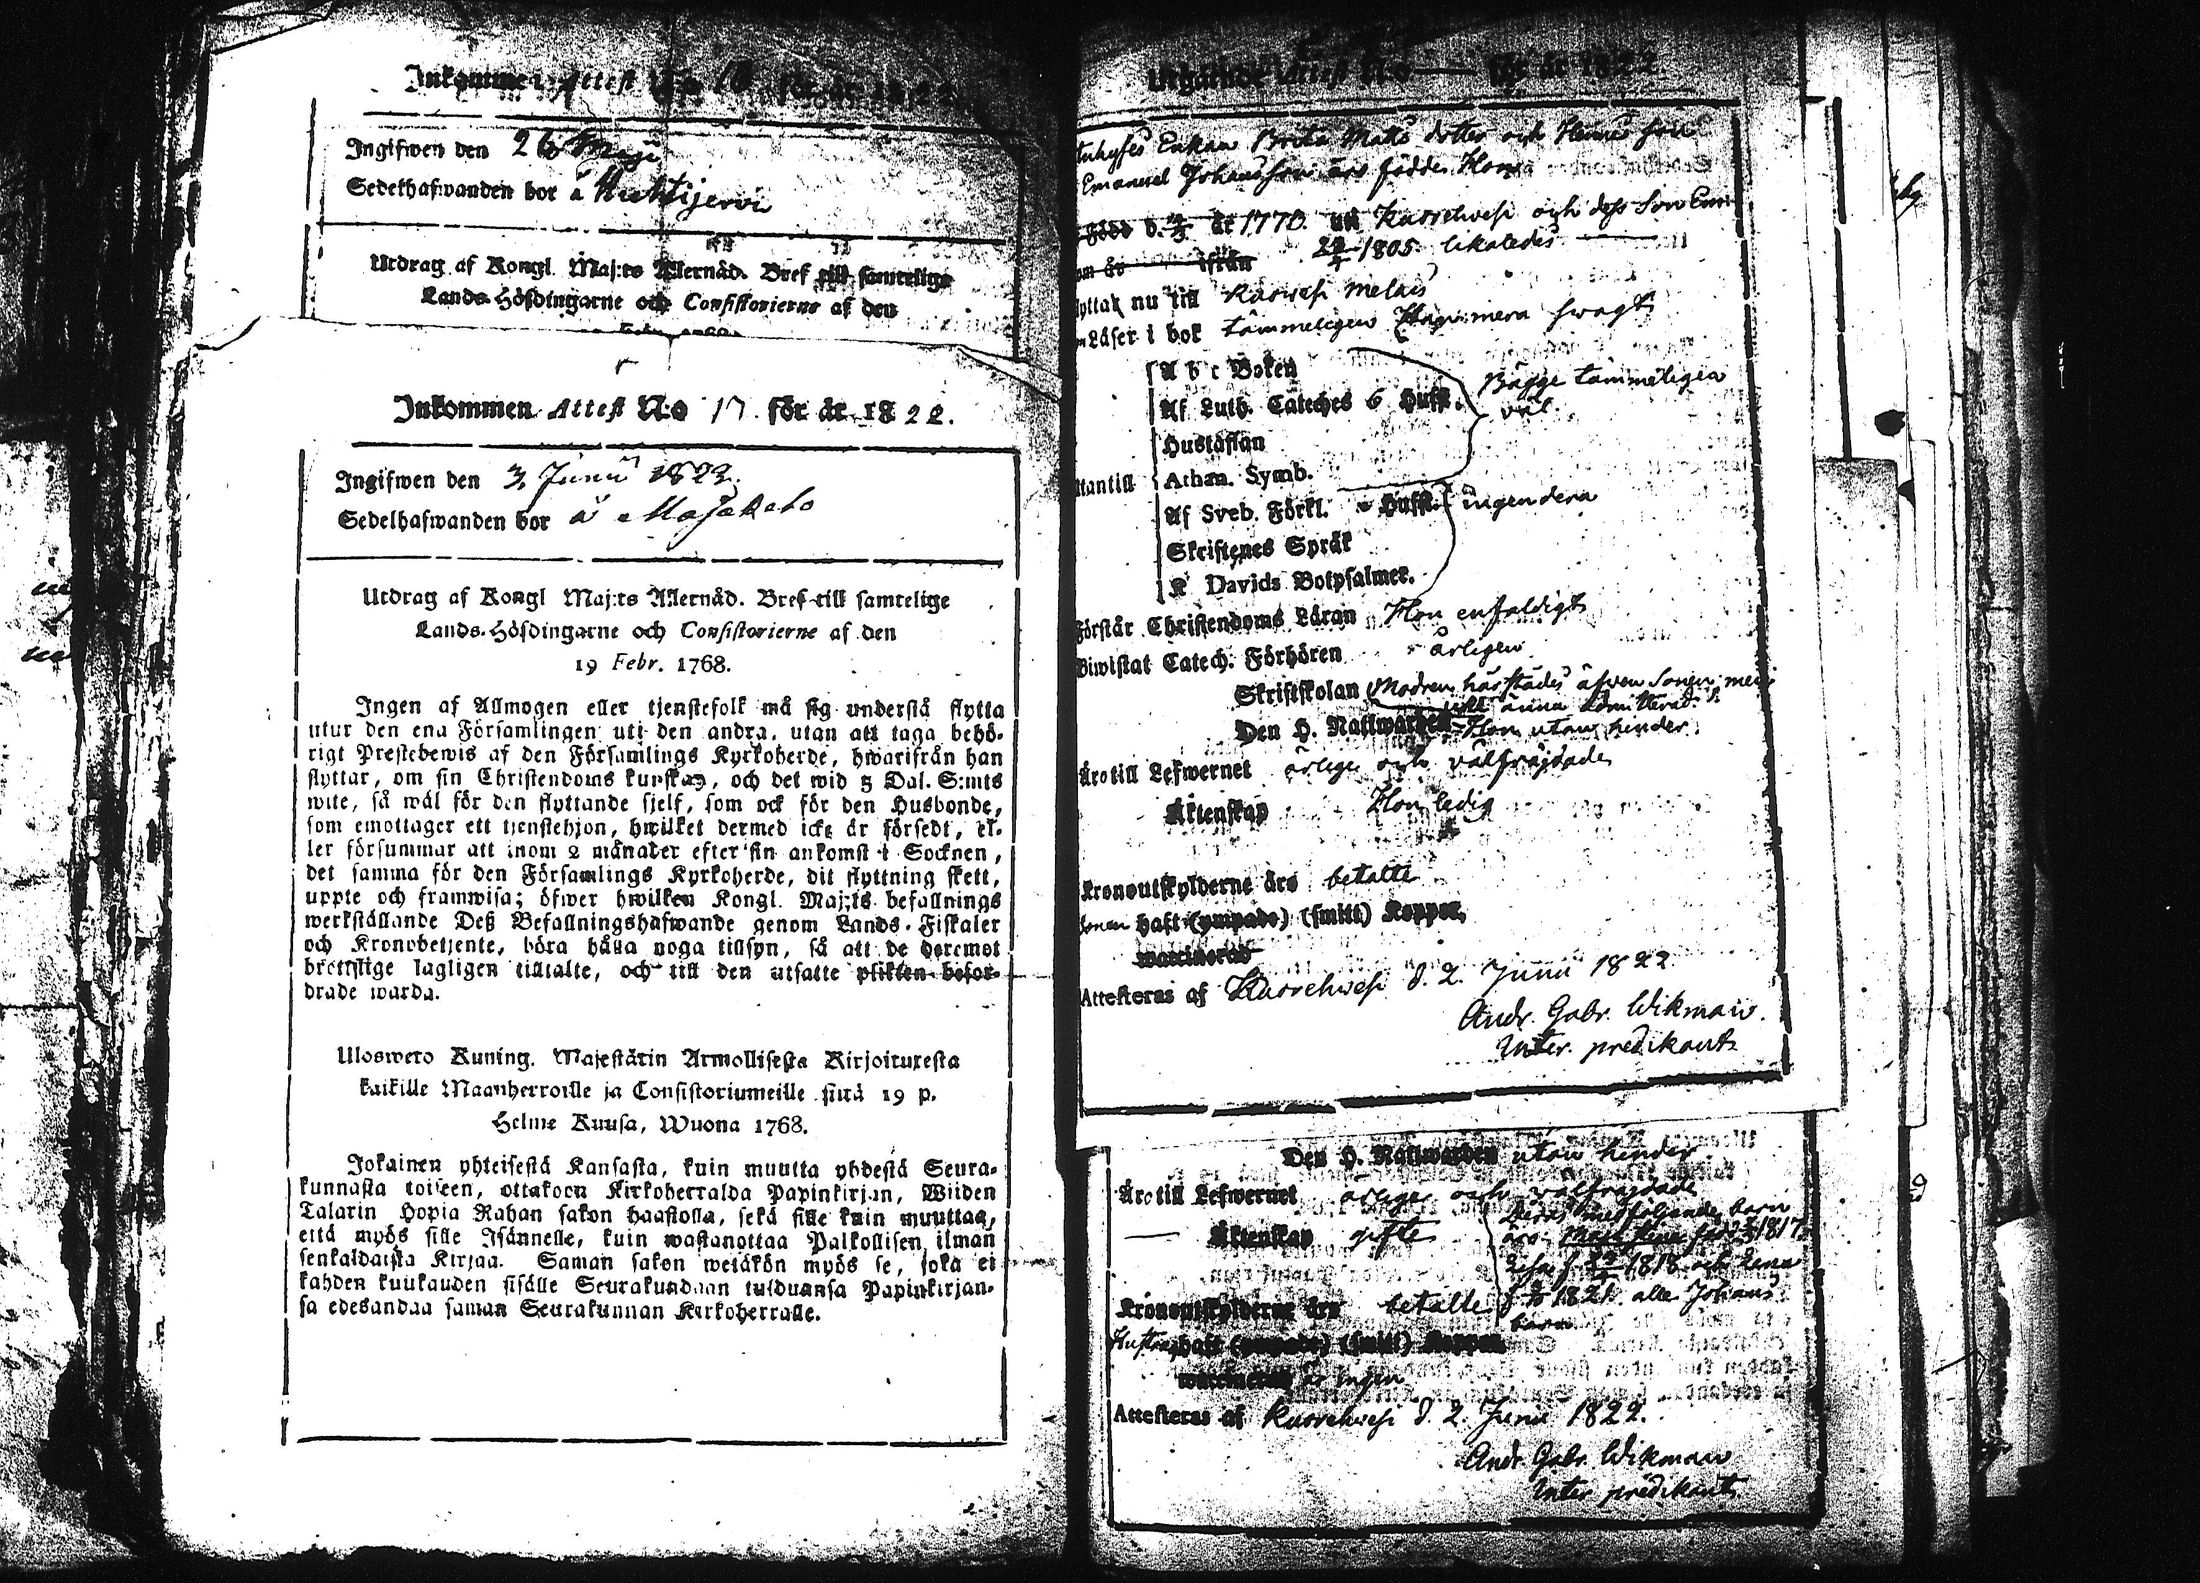 Inkommen Attest N:o 18 för år 1822
Ingifwen den 26 Maji
Sedelhafwanden bor å
Utdrag af Kongl. Maj:ts Allernåd. Bref till samtelige
Lands-Höfdingarne och Consistorierne af den
Inkommen Attest N:o 17 för år 1822.
Ingifwen den 3 Junii 1822.
Sedelhafwanden bor å
Utdrag af Kongl Maj:ts Allernåd. Bref till samtelige
Lands-Höfdingarne och Consistorierne af den
19 Febr. 1768.
Ingen af Allmogen eller tjenstefolk må sig understå flytta
utur den ena Församlingen uti den andra, utan att taga behö-
rigt Prestebewis af den Församlings Kyrkoherde, hwarifrån han
flyttar, om sin Christendoms kunskap, och det wid 5 Dal. S:mts
wite, så wäl för den flyttande sjelf, som ock för den Husbonde,
som emottager ett tjenstehjon, hwilket dermed icke är försedt, el-
ler försummar att inom 2 månader efter sin ankomst i Socknen,
det samma för den Församlings Kyrkoherde, dit flyttning skett,
uppte och framwisa; öfwer hwilken Kongl. Maj:ts befallnings
werkställande Deß Befallningshafwande genom Lands-Fiskaler
och Kronobetjente, böra hålla noga tillsyn, så att de deremot
brottslige lagligen tilltalte, och till den utsatte plikten befor-
drade warda.
Uloswero Kuning. Majestätin Armollisesta Kirjoituxesta
kaikille Maanherroille ja Consistoriumeille siitä 19 p.
Helme Kuusa, Wuona 1768.
Jokainen yhteisestä Kansasta, kuin muutta yhdestä Seura-
kunnasta toiseen, ottakoon Kirkoherralda Papinkirjan, Wiiden
Talarin Hopia Rahan sakon haastolla, sekä sille kuin muuttaa,
että myös sille Isännelle, kuin wastanottaa Palkollisen ilman
senkaldaista Kirjaa. Saman sakon wetäkön myös se, joka ei
kahden kuukauden sisälle Seurakundaan tulduansa Papinkirjan-
sa edesandaa saman Seurakunnan Kirkoherralle.
Utgående Attest N:o — för år 1822.
Enkan Brita Matts dotter och Hennes son
Emanuel Johansson äro födde, Hon
Född d. år 1770. uti och dess Son Em
ifrån 1805. likaledes
flyttar nu till
Läser i bok tämmeligen mera swagt
A b c Boken
Af Luth. Cateches 6 Hufst. Bägge tämmeligen
väl.
Hustaflan
Athan. Symb.
Utantill
Af Sveb. Förkl. Hufst. ingendera
Skriftenes Språk
K Davids Botpsalmer.
Förstår Christendoms Läran Hon enfaldigt
Biwistat Catech. Förhören årligen
Skriftskolan Modren härstädes äfven Sonen men
ännu admitterad.
Den H. Nattwarden Hon utan hinder.
Äro till Lefwernet ärlige och välfräjdade
Äktenskap Hon ledig
Kronoutskylderne äro betalte
Sonen haft (ympade) (smitt) Koppor,
waccinerad
Attesteras af d. 2. Junii 1822
Andr. Gabr. Wikman.
Inter. predikant
Den H. Nattwarden utan hinder.
Äro till Lefwernet ärlige och välfräjdade
Deras medföljande barn
Äktenskap gifte
äro 1817.
1818 och
Kronoutskylderne äro betalte 1821. alla Johans
barn
haft (ympade) (smitt) Koppor
waccinerad är ingen
Attesteras af d. 2. Junii 1822.
Andr Gabr. Wikman
Inter predikant